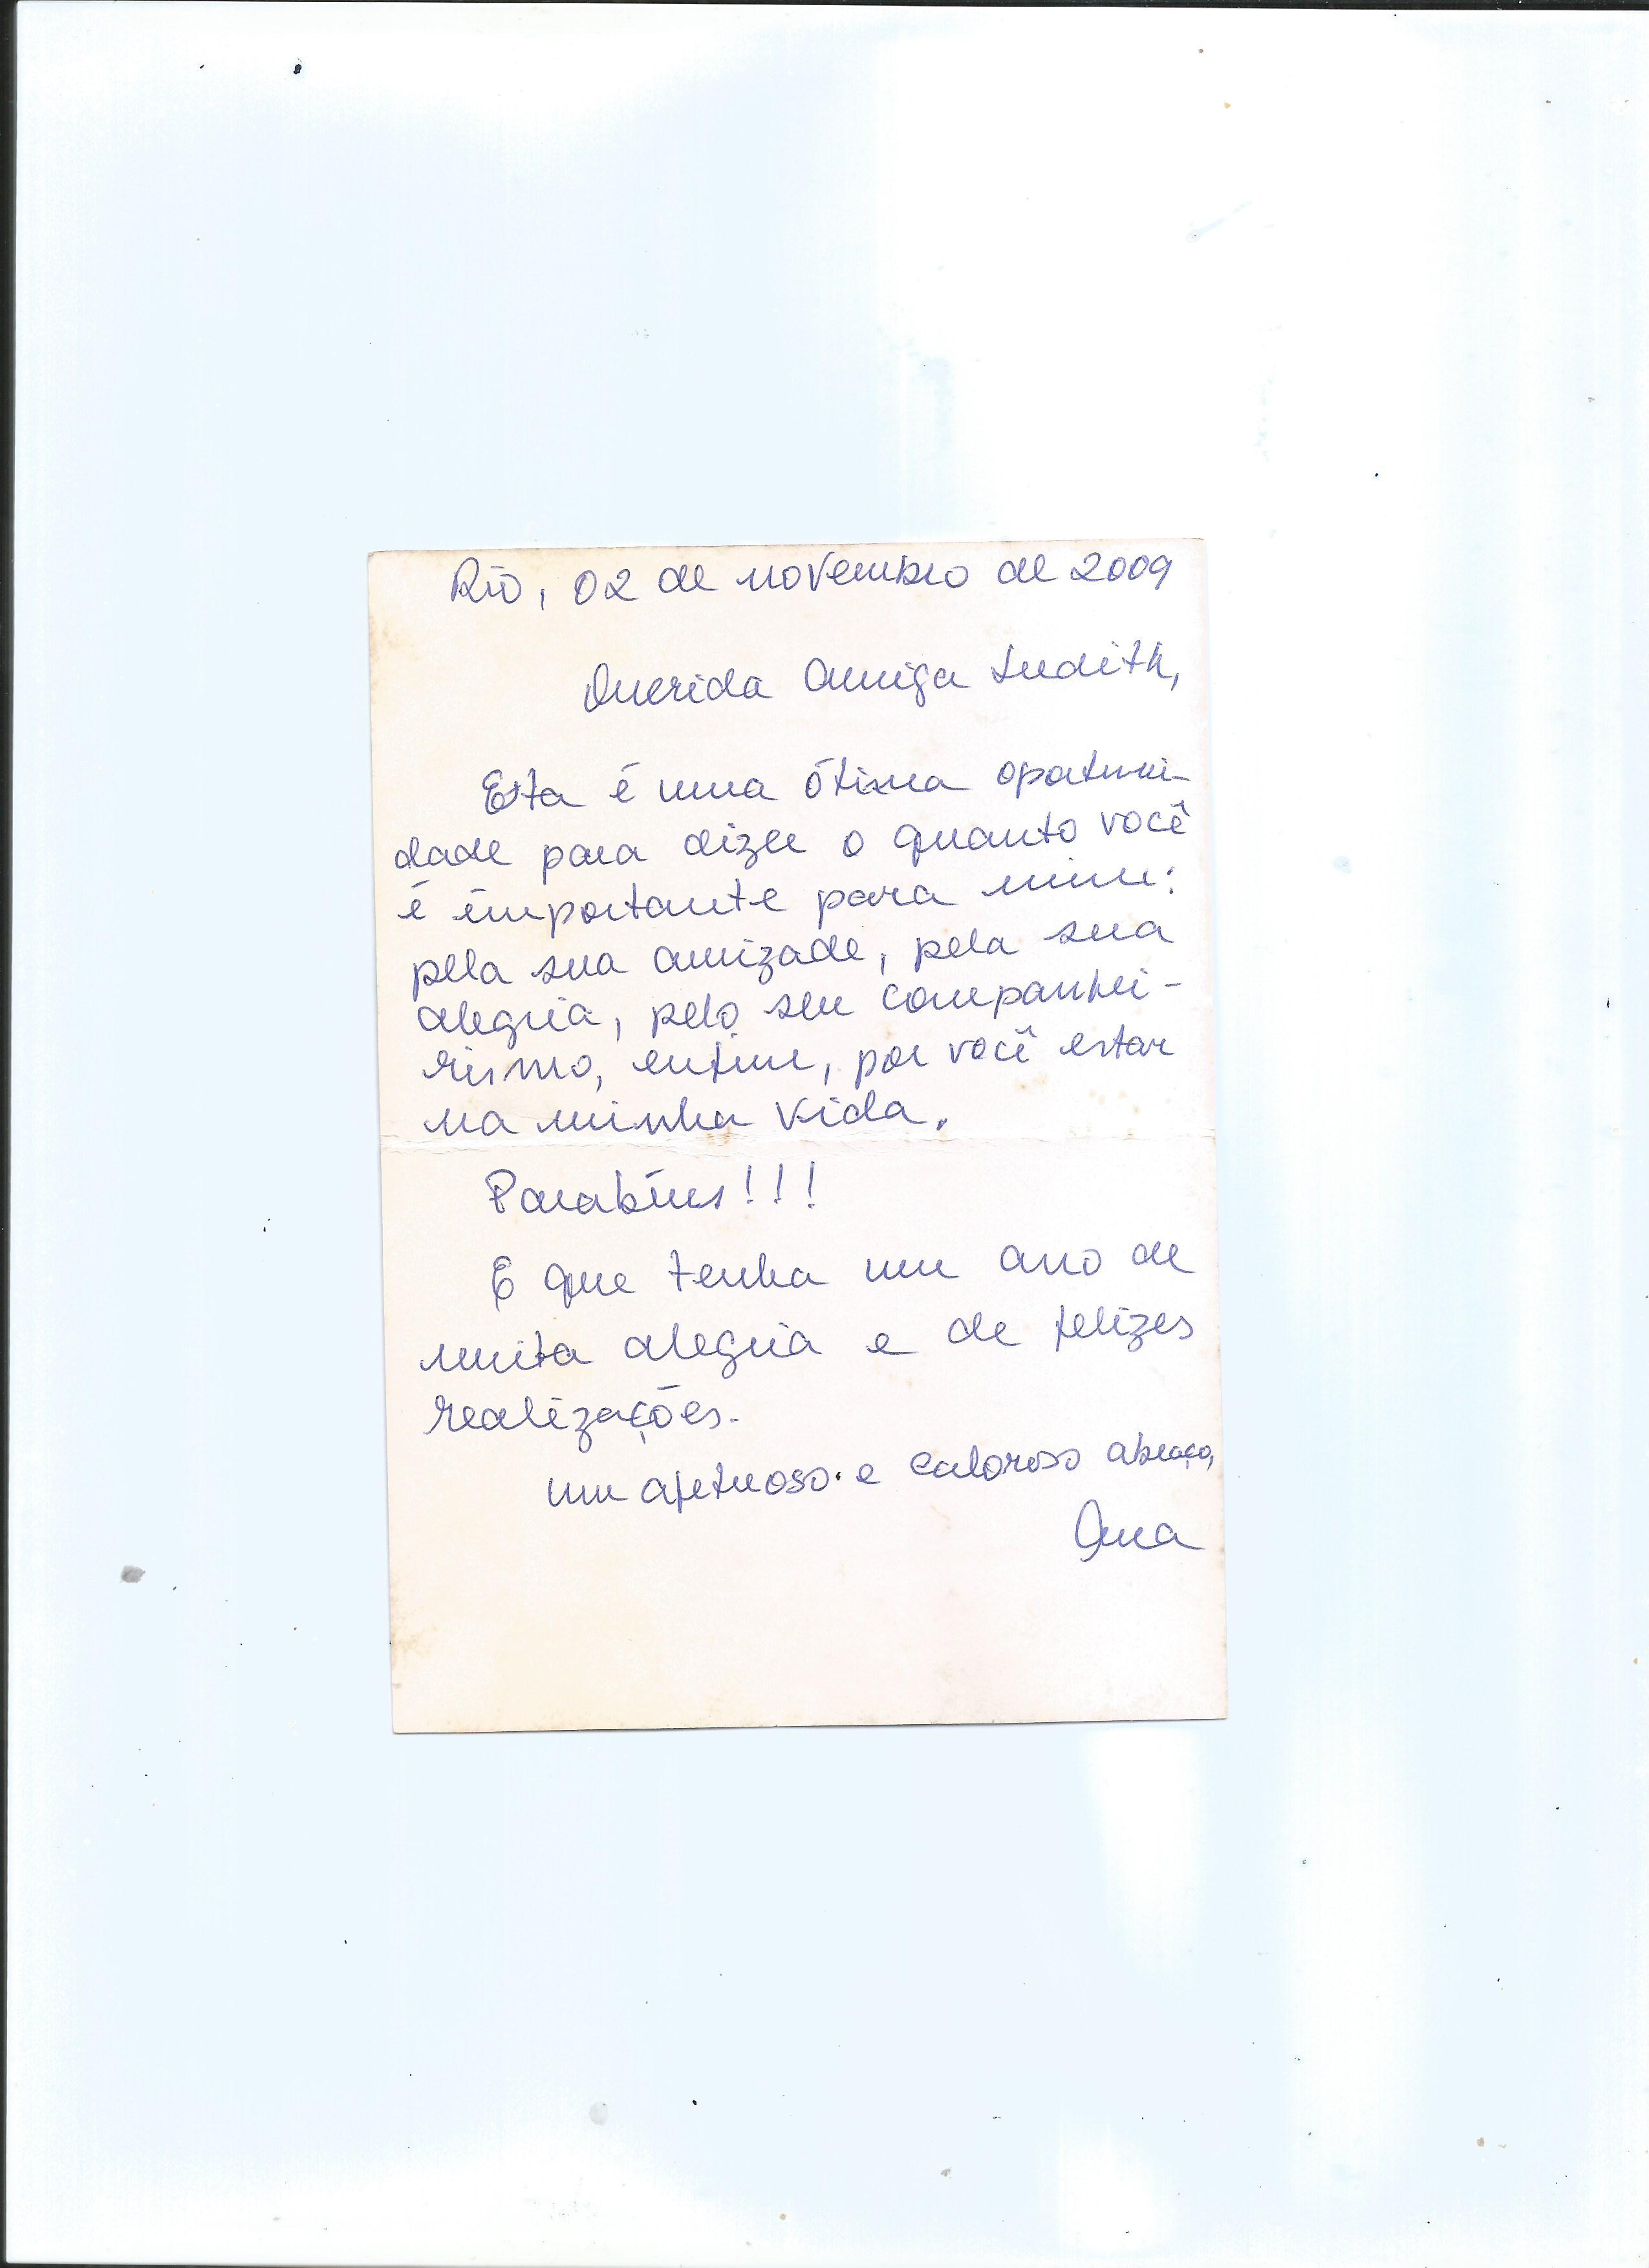 Rio, 02 de novembro de 2009
Querida Amiga Judith,
Esta é uma ótima oportuni-
dade para dizer o quanto você
é importante para mim:
pela sua amizade, pela sua
alegria, pelo seu companhei-
rismo, enfim, por você estar
na minha vida.
Parabéns!!!
E que tenha um ano de
muita alegria e de felizes
realizações.
um afetuoso e caloroso abraço,
Ana